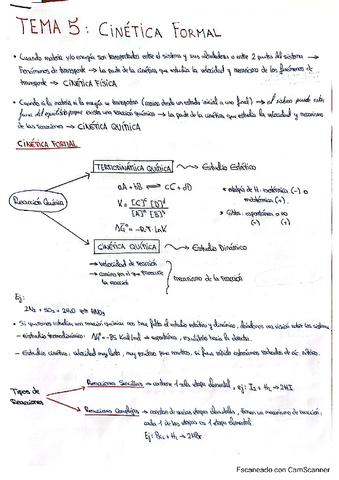 TEMA 5: CINÉTICA FORMAL
• Cuando materia y/o energía son transportados entre el sistema y sus alrededores o entre 2 puntos del sistema →
Fenómenos de transporte → La parte de la cinética que estudia la velocidad y mecanismo de los fenómenos de
transporte → CINÉTICA FÍSICA
• Cuando ni la materia ni la energía se transportan (cambia desde un estado inicial a uno final) → el sistema puede estar
fuera del equilibrio porque existe una reacción química → La parte de la cinética que estudia la velocidad y mecanismo
de las reacciones → CINÉTICA QUÍMICA
CINÉTICA FORMAL
TERMODINÁMICA QUÍMICA → Estudio Estático
aA + bB ⇌ cC + dD
• energía de H: exotérmica (-) o
endotérmica (+).
K = [C]^c [D]^d
[A]^a [B]^b
• Gibbs: espontánea o no
(-) (+)
Reacción Química
ΔG° = -R·T·LnK
CINÉTICA QUÍMICA → Estudio Dinámico
→ velocidad de reacción
→ camino por el que transcurre
la reacción
mecanismo de la reacción
Ej:
• Si queremos estudiar una reacción química nos hace falta el estudio estático y dinámico, dándonos una visión sobre los sistemas.
- estudio termodinámico:
- Estudio cinético: velocidad muy lenta, muy
Tipos de
Reacciones
Reacciones Sencillas → contiene 1 sola etapa elemental, ej: I₂ + H₂ → 2HI
Reacciones Complejas → constan de varias etapas elementales, tienen un mecanismo de reacción:
cada 1 de las etapas es 1 etapa elemental.
Ej: Br₂ + H₂ → 2HBr
Escaneado con CamScanner